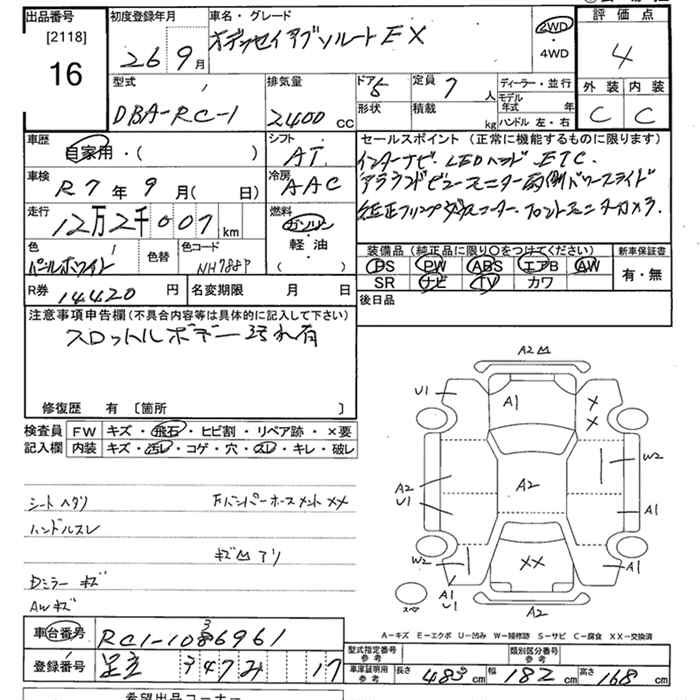 出品番号
[2118]
16
初度登録年月
26 9月
車名・グレード
オデッセイアブソルート EX
2WD
・
4WD
評価点
4
外装 内装
C C
型式
DBA-RC-1
排気量
2400 CC
ドア 5
定員 7 人
形状
積載 kg
ディーラー・並行
モデル年式 年
ハンドル 左・右
車歴
自家用・( )
シフト
AT
車検
R7年 9月( 日)
冷房
AAC
走行
12万2千007 km
燃料
ガソリン
・
軽油
( )
色
パールホワイト
色替
色コード
NH788P
R券 14420 円
名変期限 月 日
セールスポイント (正常に機能するものに限ります)
インターナビ. LEDヘッド. ETC.
アラウンドビューモニター 両側パワースライド
装備品 (純正品に限り○をつけてください)
PS PW ABS エアB AW
SR ナビ TV カワ
新車保証書
有・無
後日品
注意事項申告欄(不具合内容等は具体的に記入して下さい)
スロットルボデー汚れ有
修復歴 有 〔箇所 〕
検査員記入欄
FW キズ・飛石・ヒビ割・リペア跡・×要
内装 キズ・汚レ・コゲ・穴・スレ・キレ・破レ
シートヘタリ
ハンドルスレ
Dミラーキズ
AWキズ
A2
U1
A1
X
X
W2
A2
A2
U1
A1
W2
XX
A1
A1
U1
A2
スペア
A-キズ E-エクボ U-凹み W-補修跡 S-サビ C-腐食 XX-交換済
車台番号
RC1-1086961
3
登録番号
足立 347 み 17
型式指定番号
参考
類別区分番号
参考
車庫証明用
参考
長さ 483 cm
幅 182 cm
高さ 168 cm
希望出品コーナー